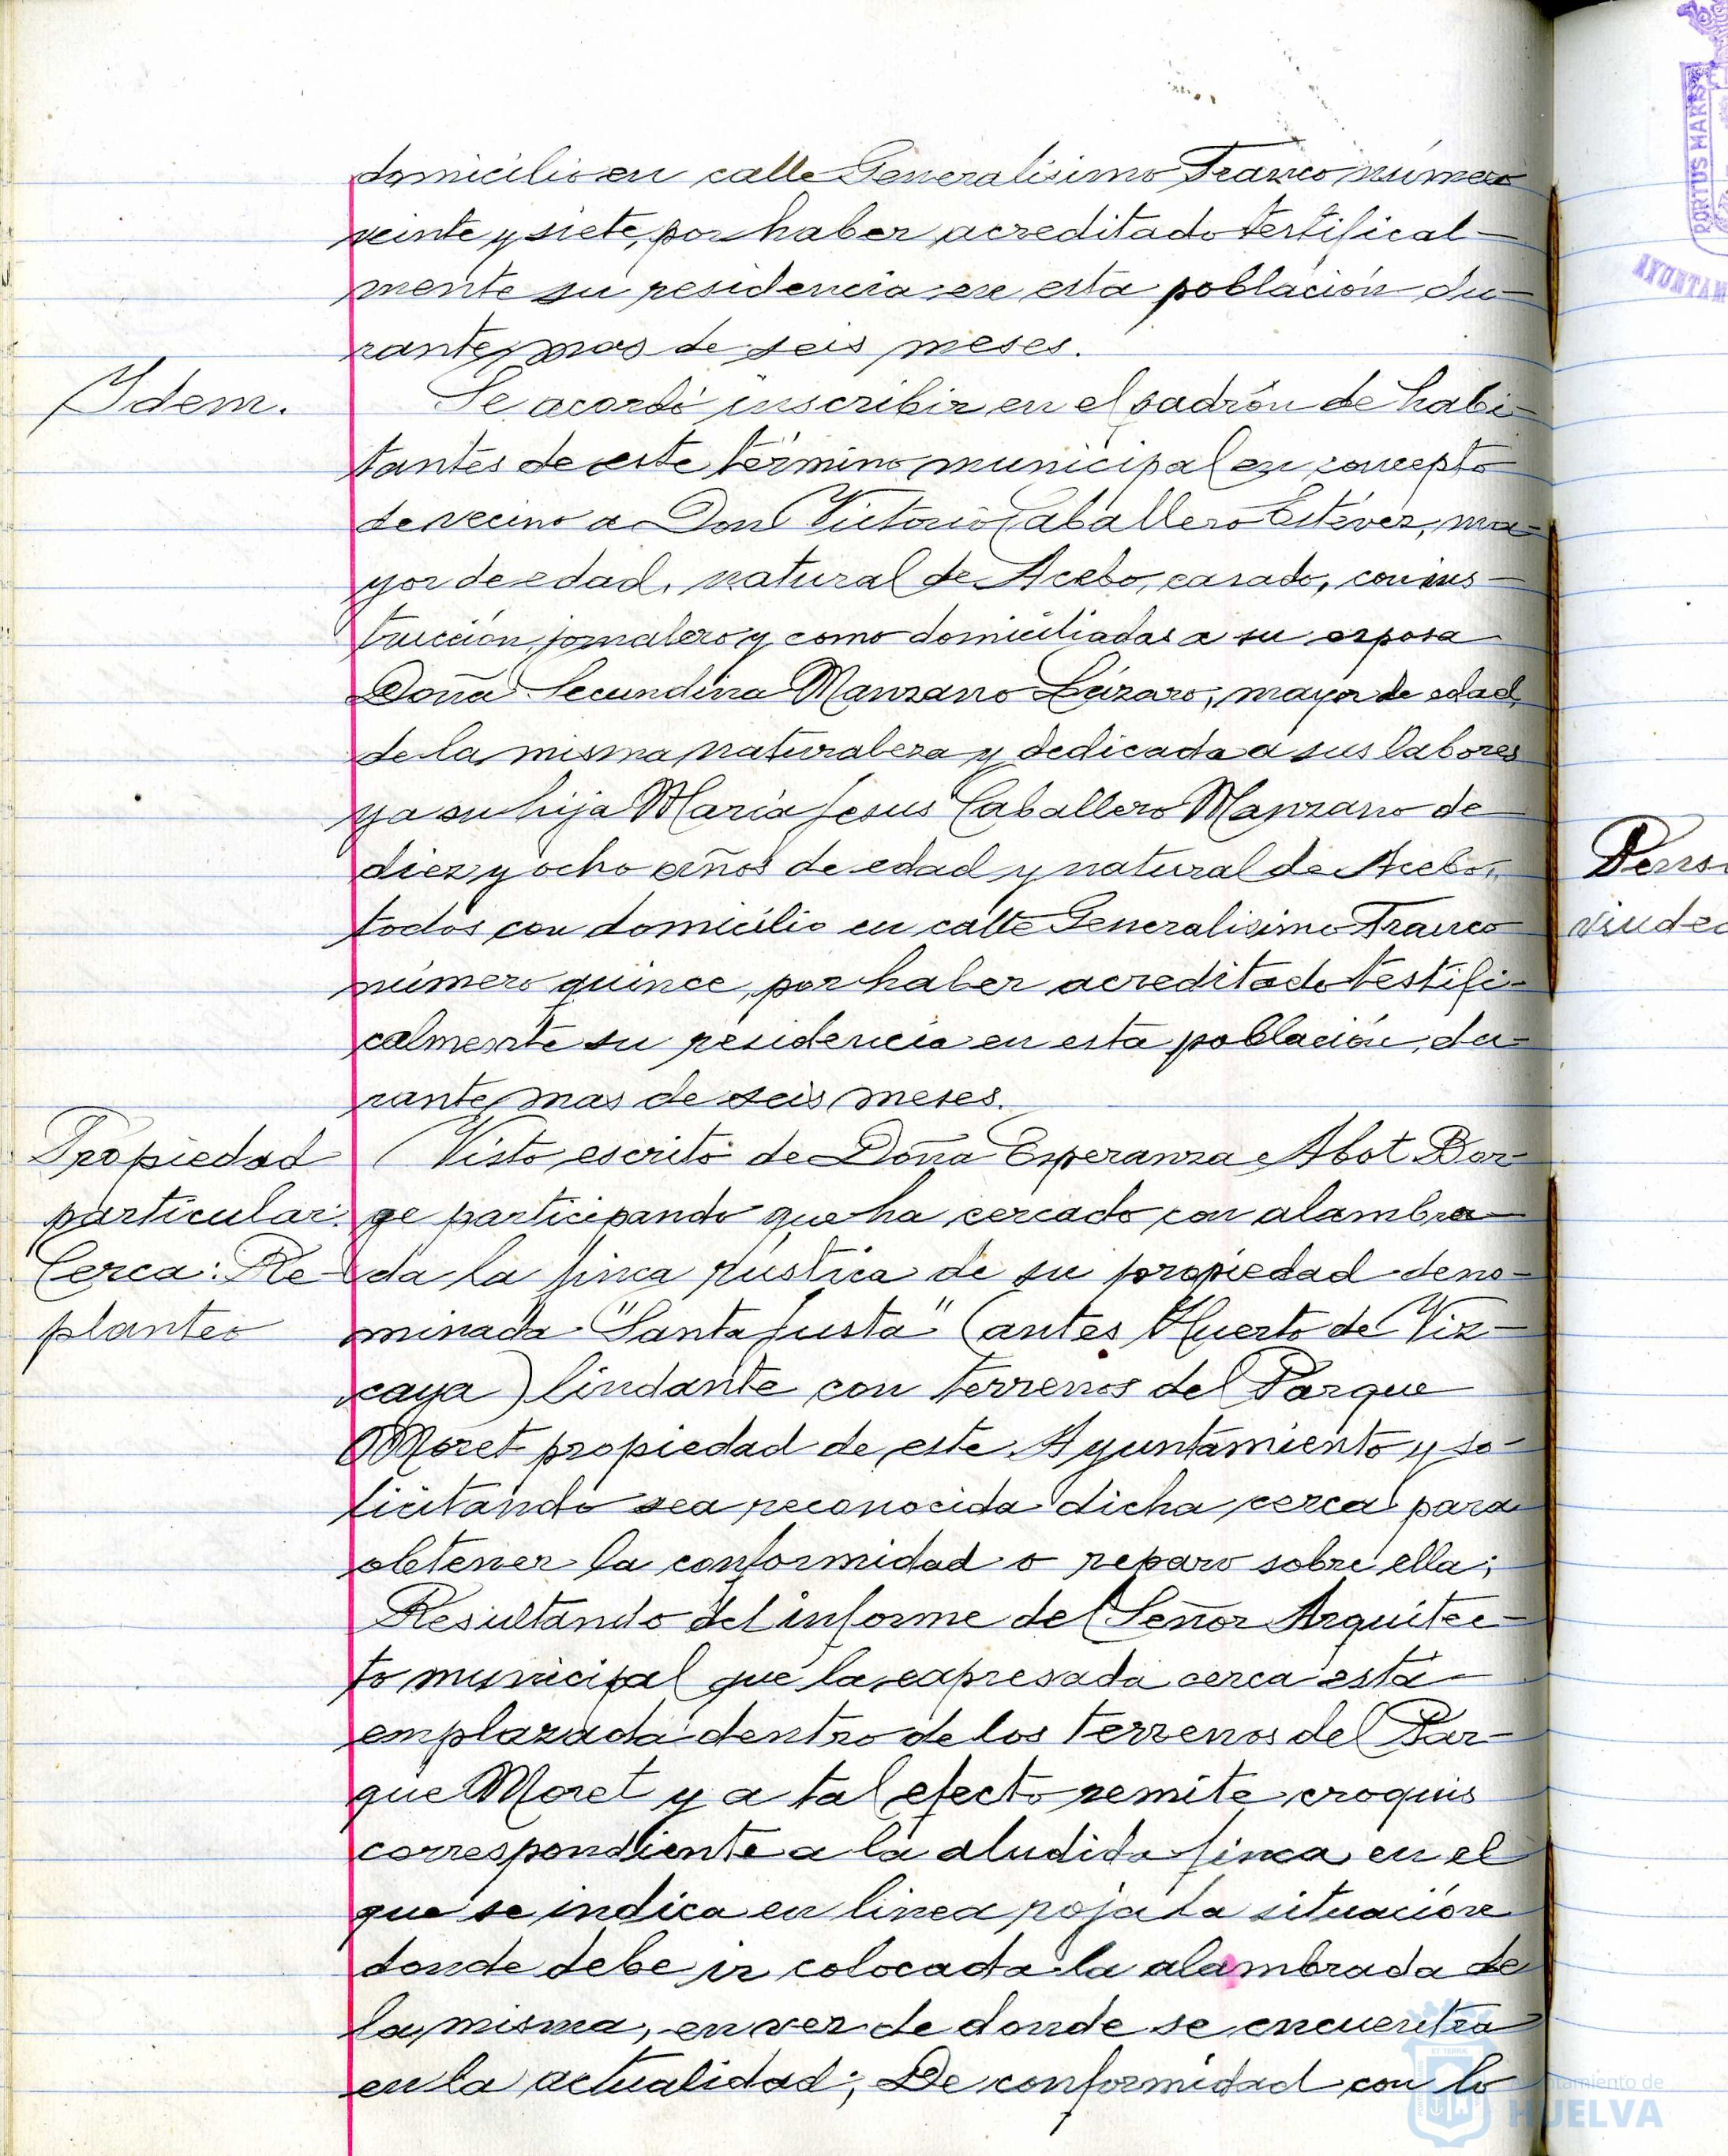 domicilio en calle Generalisimo Franco número
veinte y siete, por haber acreditado testifical-
mente su residencia en esta población du-
rante mas de seis meses.
Idem.
Se acordó inscribir en el padrón de habi-
tantes de este término municipal en concepto
de vecino a Don Victorio Caballero Estévez, ma-
yor de edad, natural de Acebo, casado, con ins-
trucción, jornalero y como domiciliadas a su esposa
Doña Secundina Manzano Lázaro, mayor de edad,
de la misma naturaleza y dedicada a sus labores
y a su hija Maria Jesus Caballero Manzano de
diez y ocho años de edad y natural de Acebo,
todos con domicilio en calle Generalisimo Franco
número quince, por haber acreditado testifi-
calmente su residencia en esta población, du-
rante mas de seis meses.
Propiedad
particular.
Cerca: Re-
planteo
Visto escrito de Doña Esperanza Abot Bor-
ge participando que ha cercado con alambra-
da la finca rústica de su propiedad deno-
minada "Santa Justa" (antes Huerto de Viz-
caya) lindante con terrenos del Parque
Moret propiedad de este Ayuntamiento y so-
licitando sea reconocida dicha cerca para
obtener la conformidad o reparo sobre ella;
Resultando del informe del Señor Arquitec-
to municipal que la expresada cerca está
emplazada dentro de los terrenos del Par-
que Moret y a tal efecto remite croquis
correspondiente a la aludida finca en el
que se indica en linea roja la situación
donde debe ir colocada la alambrada de
la misma, en vez de donde se encuentra
en la actualidad; De conformidad con lo
PORTUS MARIS
AYUNTAM
viudec
HUELVA